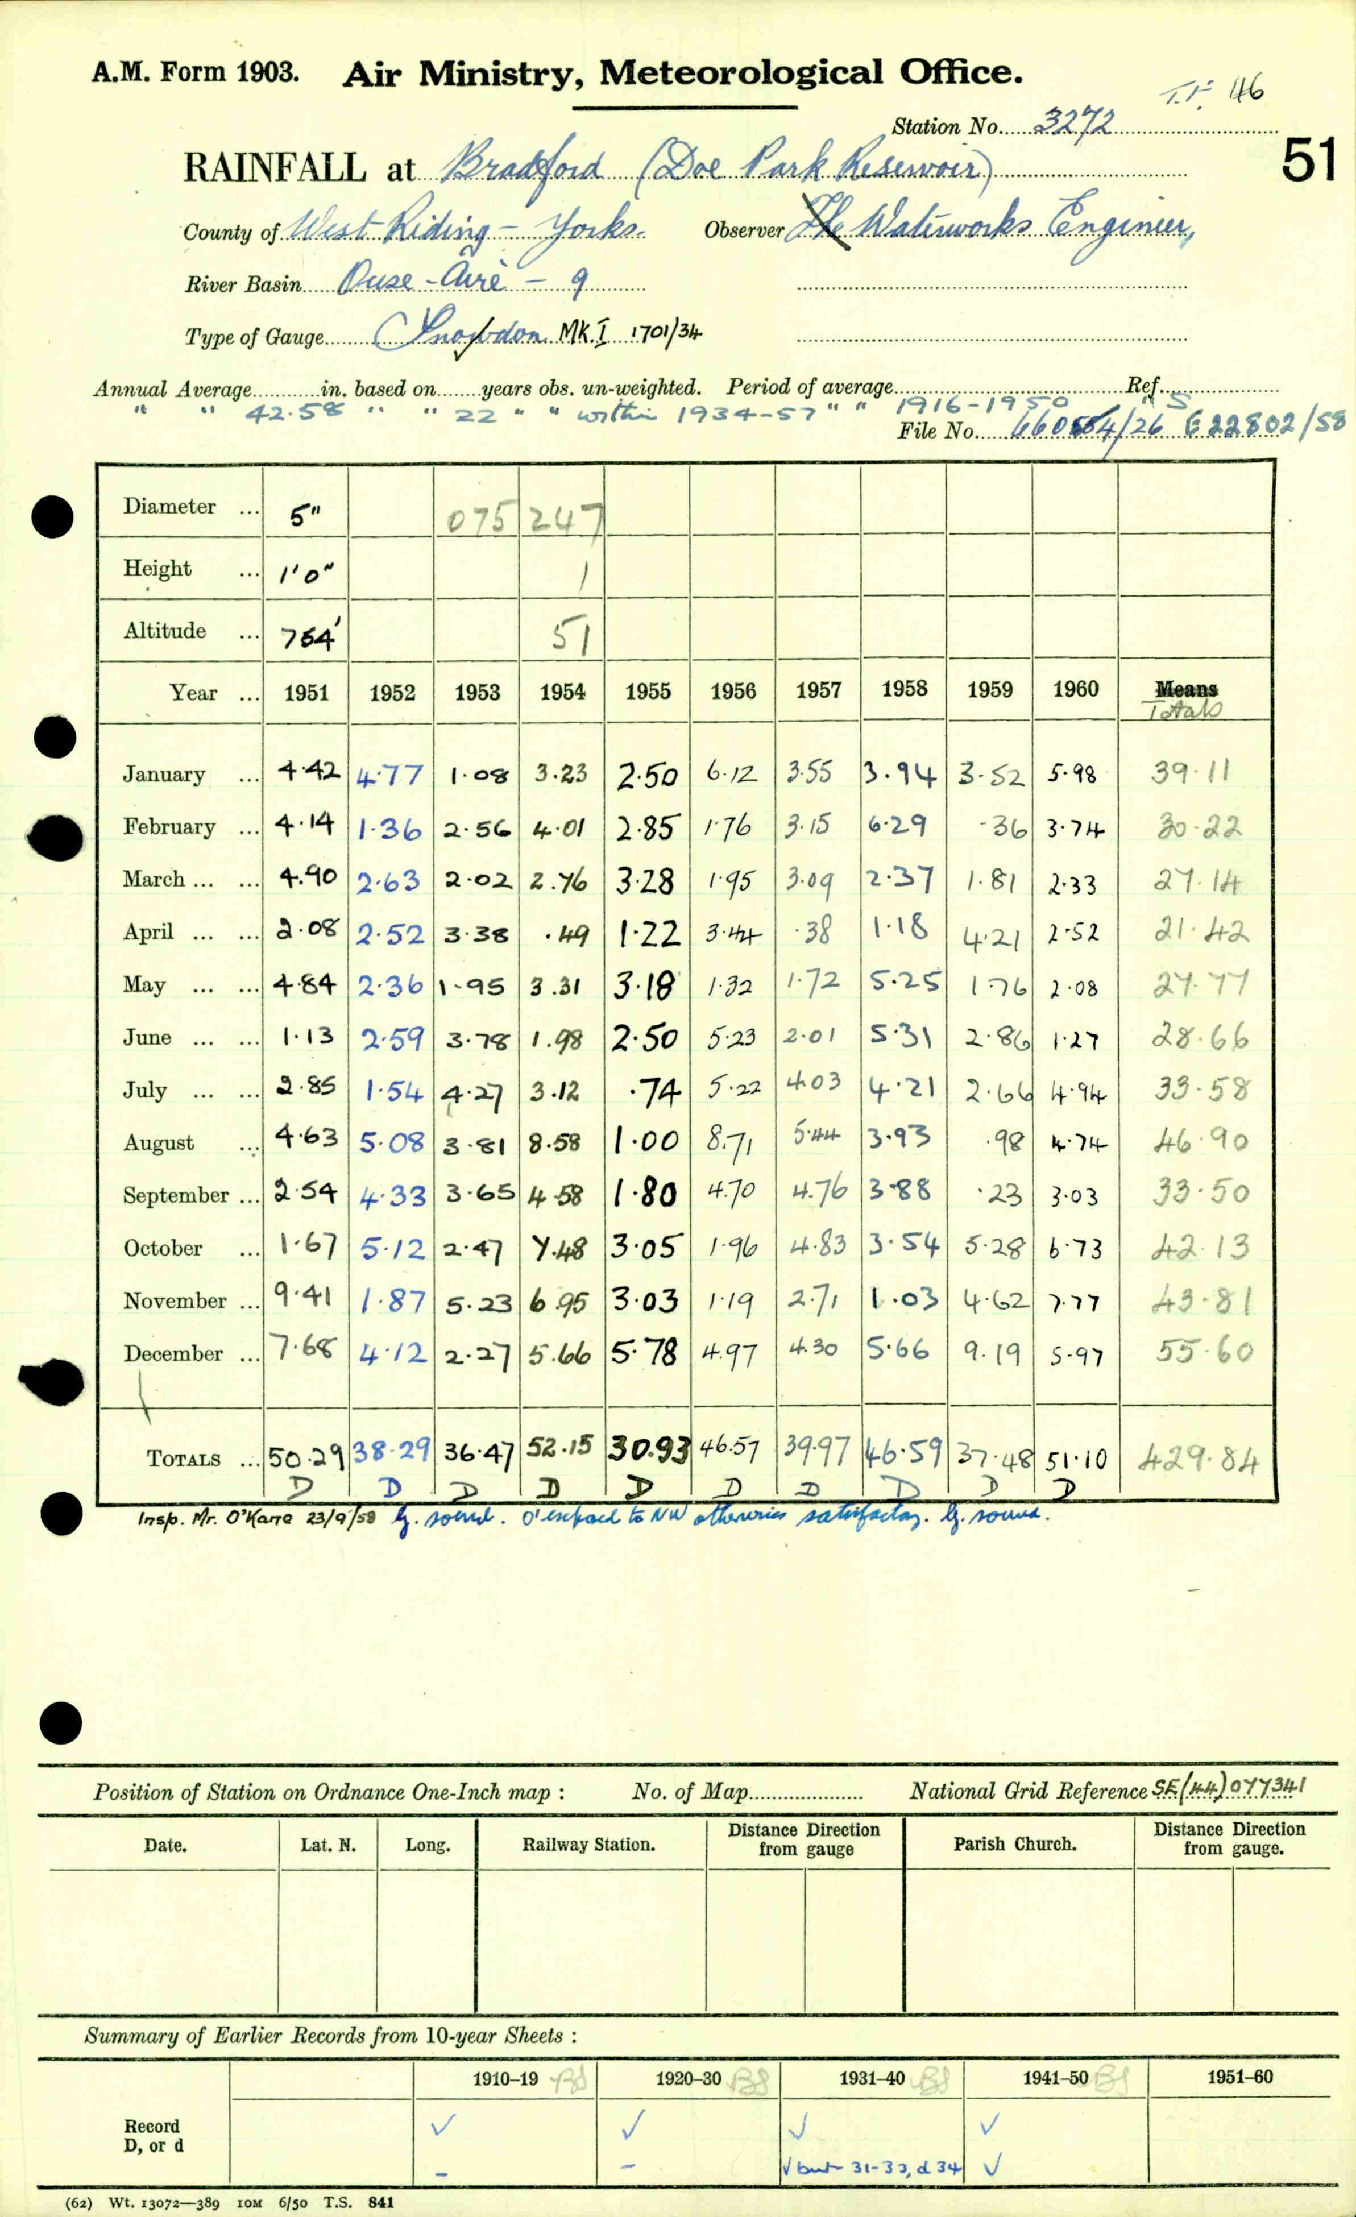 A.M. Form 1903. Air Ministry, Meteorological Office.
T.F. 46
Station No. 3272
51
RAINFALL at Bradford (Doe Park Reservoir)
County of West Riding - Yorks. Observer The Waterworks Engineer,
River Basin Ouse - Aire - 9
Type of Gauge Snowdon MK.I 1701/34
Annual Average in. based on years obs. un-weighted. Period of average Ref.
" " 42.58 " " 22 " " within 1934-57 " " 1916-1950 " S
File No. /26 E22802/58
Diameter ... 5" 075 247
Height ... 1'0" 1
Altitude ... 764' 51
Year ... 1951 1952 1953 1954 1955 1956 1957 1958 1959 1960 Means
Totals
January ... 4.42 4.77 1.08 3.23 2.50 6.12 3.55 3.94 3.52 5.98 39.11
February ... 4.14 1.36 2.56 4.01 2.85 1.76 3.15 6.29 .36 3.74 30.22
March ... ... 4.90 2.63 2.02 2.76 3.28 1.95 3.09 2.37 1.81 2.33 27.14
April ... ... 2.08 2.52 3.38 .49 1.22 3.44 .38 1.18 4.21 2.52 21.42
May ... ... 4.84 2.36 1.95 3.31 3.18 1.32 1.72 5.25 1.76 2.08 27.77
June ... ... 1.13 2.59 3.78 1.98 2.50 5.23 2.01 5.31 2.86 1.27 28.66
July ... ... 2.85 1.54 4.27 3.12 .74 5.22 4.03 4.21 2.66 4.94 33.58
August ... 4.63 5.08 3.81 8.58 1.00 8.71 5.44 3.93 .98 4.74 46.90
September ... 2.54 4.33 3.65 4.58 1.80 4.70 4.76 3.88 .23 3.03 33.50
October ... 1.67 5.12 2.47 7.48 3.05 1.96 4.83 3.54 5.28 6.73 42.13
November ... 9.41 1.87 5.23 6.95 3.03 1.19 2.71 1.03 4.62 7.77 43.81
December ... 7.68 4.12 2.27 5.66 5.78 4.97 4.30 5.66 9.19 5.97 55.60
TOTALS ... 50.29 38.29 36.47 52.15 30.93 46.57 39.97 46.59 37.48 51.10 429.84
D D D D D D D D D D
Insp. Mr. O'Kane 23/9/58 G. sound. O'exposed to NW otherwise satisfactory. G. sound.
Position of Station on Ordnance One-Inch map : No. of Map National Grid Reference SE(44)077341
Date. Lat. N. Long. Railway Station. Distance Direction from gauge Parish Church. Distance Direction from gauge.
Summary of Earlier Records from 10-year Sheets :
1910–19 BS 1920–30 BS 1931–40 BS 1941–50 BS 1951–60
Record ✓ ✓ ✓ ✓
D, or d - - ✓ but 31-33, d 34 ✓
(62) Wt. 13072—389 10M 6/50 T.S. 841